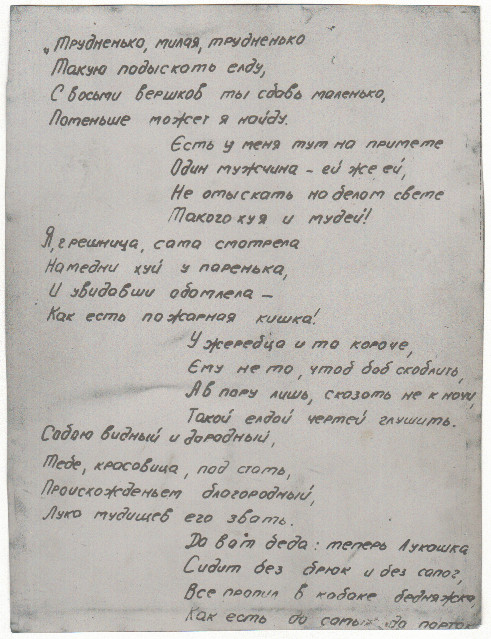 „Трудненько, милая, трудненько
Такую подыскать елду,
С восьми вершков ты сбавь маленько,
Поменьше может я найду.
Есть у меня тут на примете
Один мужчина - ей же ей,
Не отыскать на белом свете
Такого хуя и мудей!
Я, грешница, сама смотрела
Намедни хуй у паренька,
И увидавши обомлела –
Как есть пожарная кишка!
У жеребца и то короче,
Ему не то, чтоб баб скоблить,
А в пору лишь, сказать не к ночи,
Такой елдой чертей глушить.
Собою видный и дородный,
Тебе, красавица, под стать,
Происхожденьем благородный,
Лука мудищев его звать.
Да вот беда: теперь Лукашка
Сидит без брюк и без сапог,
Все пропил в кабаке бедняжка,
Как есть до самых до порток